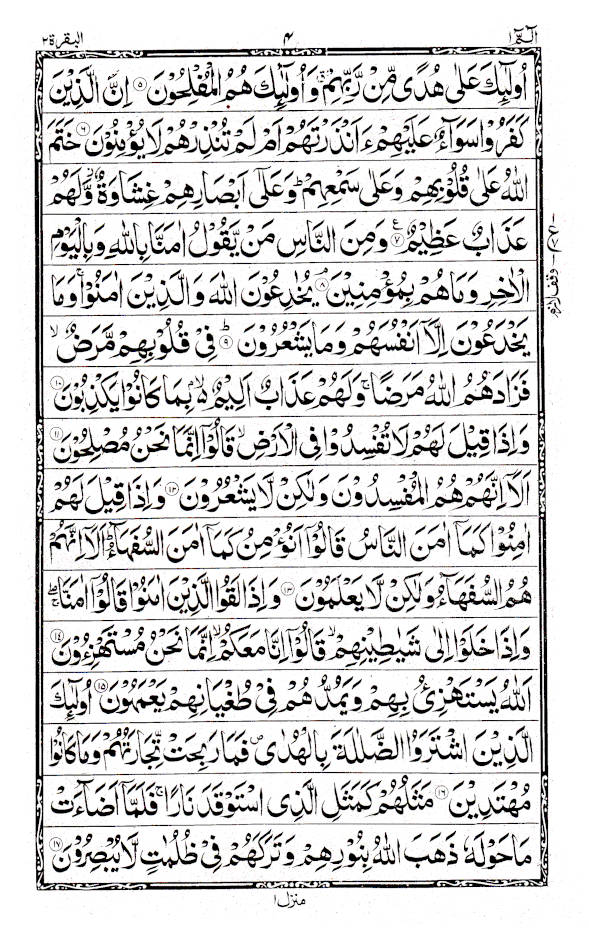 الٓمّٓ ١ ۴ البقرة ٢
اُولٰٓئِكَ عَلٰى هُدًى مِّنْ رَّبِّهِمْ ۗ وَاُولٰٓئِكَ هُمُ الْمُفْلِحُوْنَ ۝٥ اِنَّ الَّذِيْنَ
كَفَرُوْا سَوَآءٌ عَلَيْهِمْ ءَاَنْذَرْتَهُمْ اَمْ لَمْ تُنْذِرْهُمْ لَا يُؤْمِنُوْنَ ۝٦ خَتَمَ
اللّٰهُ عَلٰى قُلُوْبِهِمْ وَعَلٰى سَمْعِهِمْ ؕ وَعَلٰٓى اَبْصَارِهِمْ غِشَاوَةٌ ز وَّلَهُمْ
عَذَابٌ عَظِيْمٌ ۝٧ ع وَمِنَ النَّاسِ مَنْ يَّقُوْلُ اٰمَنَّا بِاللّٰهِ وَبِالْيَوْمِ
الْاٰخِرِ وَمَا هُمْ بِمُؤْمِنِيْنَ ۘ ۝٨ يُخٰدِعُوْنَ اللّٰهَ وَالَّذِيْنَ اٰمَنُوْا ۚ وَمَا
يَخْدَعُوْنَ اِلَّآ اَنْفُسَهُمْ وَمَا يَشْعُرُوْنَ ؕ ۝٩ فِيْ قُلُوْبِهِمْ مَّرَضٌ ۙ
فَزَادَهُمُ اللّٰهُ مَرَضًا ۚ وَلَهُمْ عَذَابٌ اَلِيْمٌۢ ۙ بِمَا كَانُوْا يَكْذِبُوْنَ ۝١٠
وَاِذَا قِيْلَ لَهُمْ لَا تُفْسِدُوْا فِى الْاَرْضِ ۙ قَالُوْٓا اِنَّمَا نَحْنُ مُصْلِحُوْنَ ۝١١
اَلَآ اِنَّهُمْ هُمُ الْمُفْسِدُوْنَ وَلٰكِنْ لَّا يَشْعُرُوْنَ ۝١٢ وَاِذَا قِيْلَ لَهُمْ
اٰمِنُوْا كَمَآ اٰمَنَ النَّاسُ قَالُوْٓا اَنُؤْمِنُ كَمَآ اٰمَنَ السُّفَهَآءُ ؕ اَلَآ اِنَّهُمْ
هُمُ السُّفَهَآءُ وَلٰكِنْ لَّا يَعْلَمُوْنَ ۝١٣ وَاِذَا لَقُوا الَّذِيْنَ اٰمَنُوْا قَالُوْٓا اٰمَنَّا ۚۖ
وَاِذَا خَلَوْا اِلٰى شَيٰطِيْنِهِمْ ۙ قَالُوْٓا اِنَّا مَعَكُمْ ۙ اِنَّمَا نَحْنُ مُسْتَهْزِءُوْنَ ۝١٤
اَللّٰهُ يَسْتَهْزِئُ بِهِمْ وَيَمُدُّهُمْ فِيْ طُغْيَانِهِمْ يَعْمَهُوْنَ ۝١٥ اُولٰٓئِكَ
الَّذِيْنَ اشْتَرَوُا الضَّلٰلَةَ بِالْهُدٰى ۪ فَمَا رَبِحَتْ تِّجَارَتُهُمْ وَمَا كَانُوْا
مُهْتَدِيْنَ ۝١٦ مَثَلُهُمْ كَمَثَلِ الَّذِى اسْتَوْقَدَ نَارًا ۚ فَلَمَّآ اَضَآءَتْ
مَا حَوْلَهٗ ذَهَبَ اللّٰهُ بِنُوْرِهِمْ وَتَرَكَهُمْ فِيْ ظُلُمٰتٍ لَّا يُبْصِرُوْنَ ۝١٧
وقف لازم
منزل ١